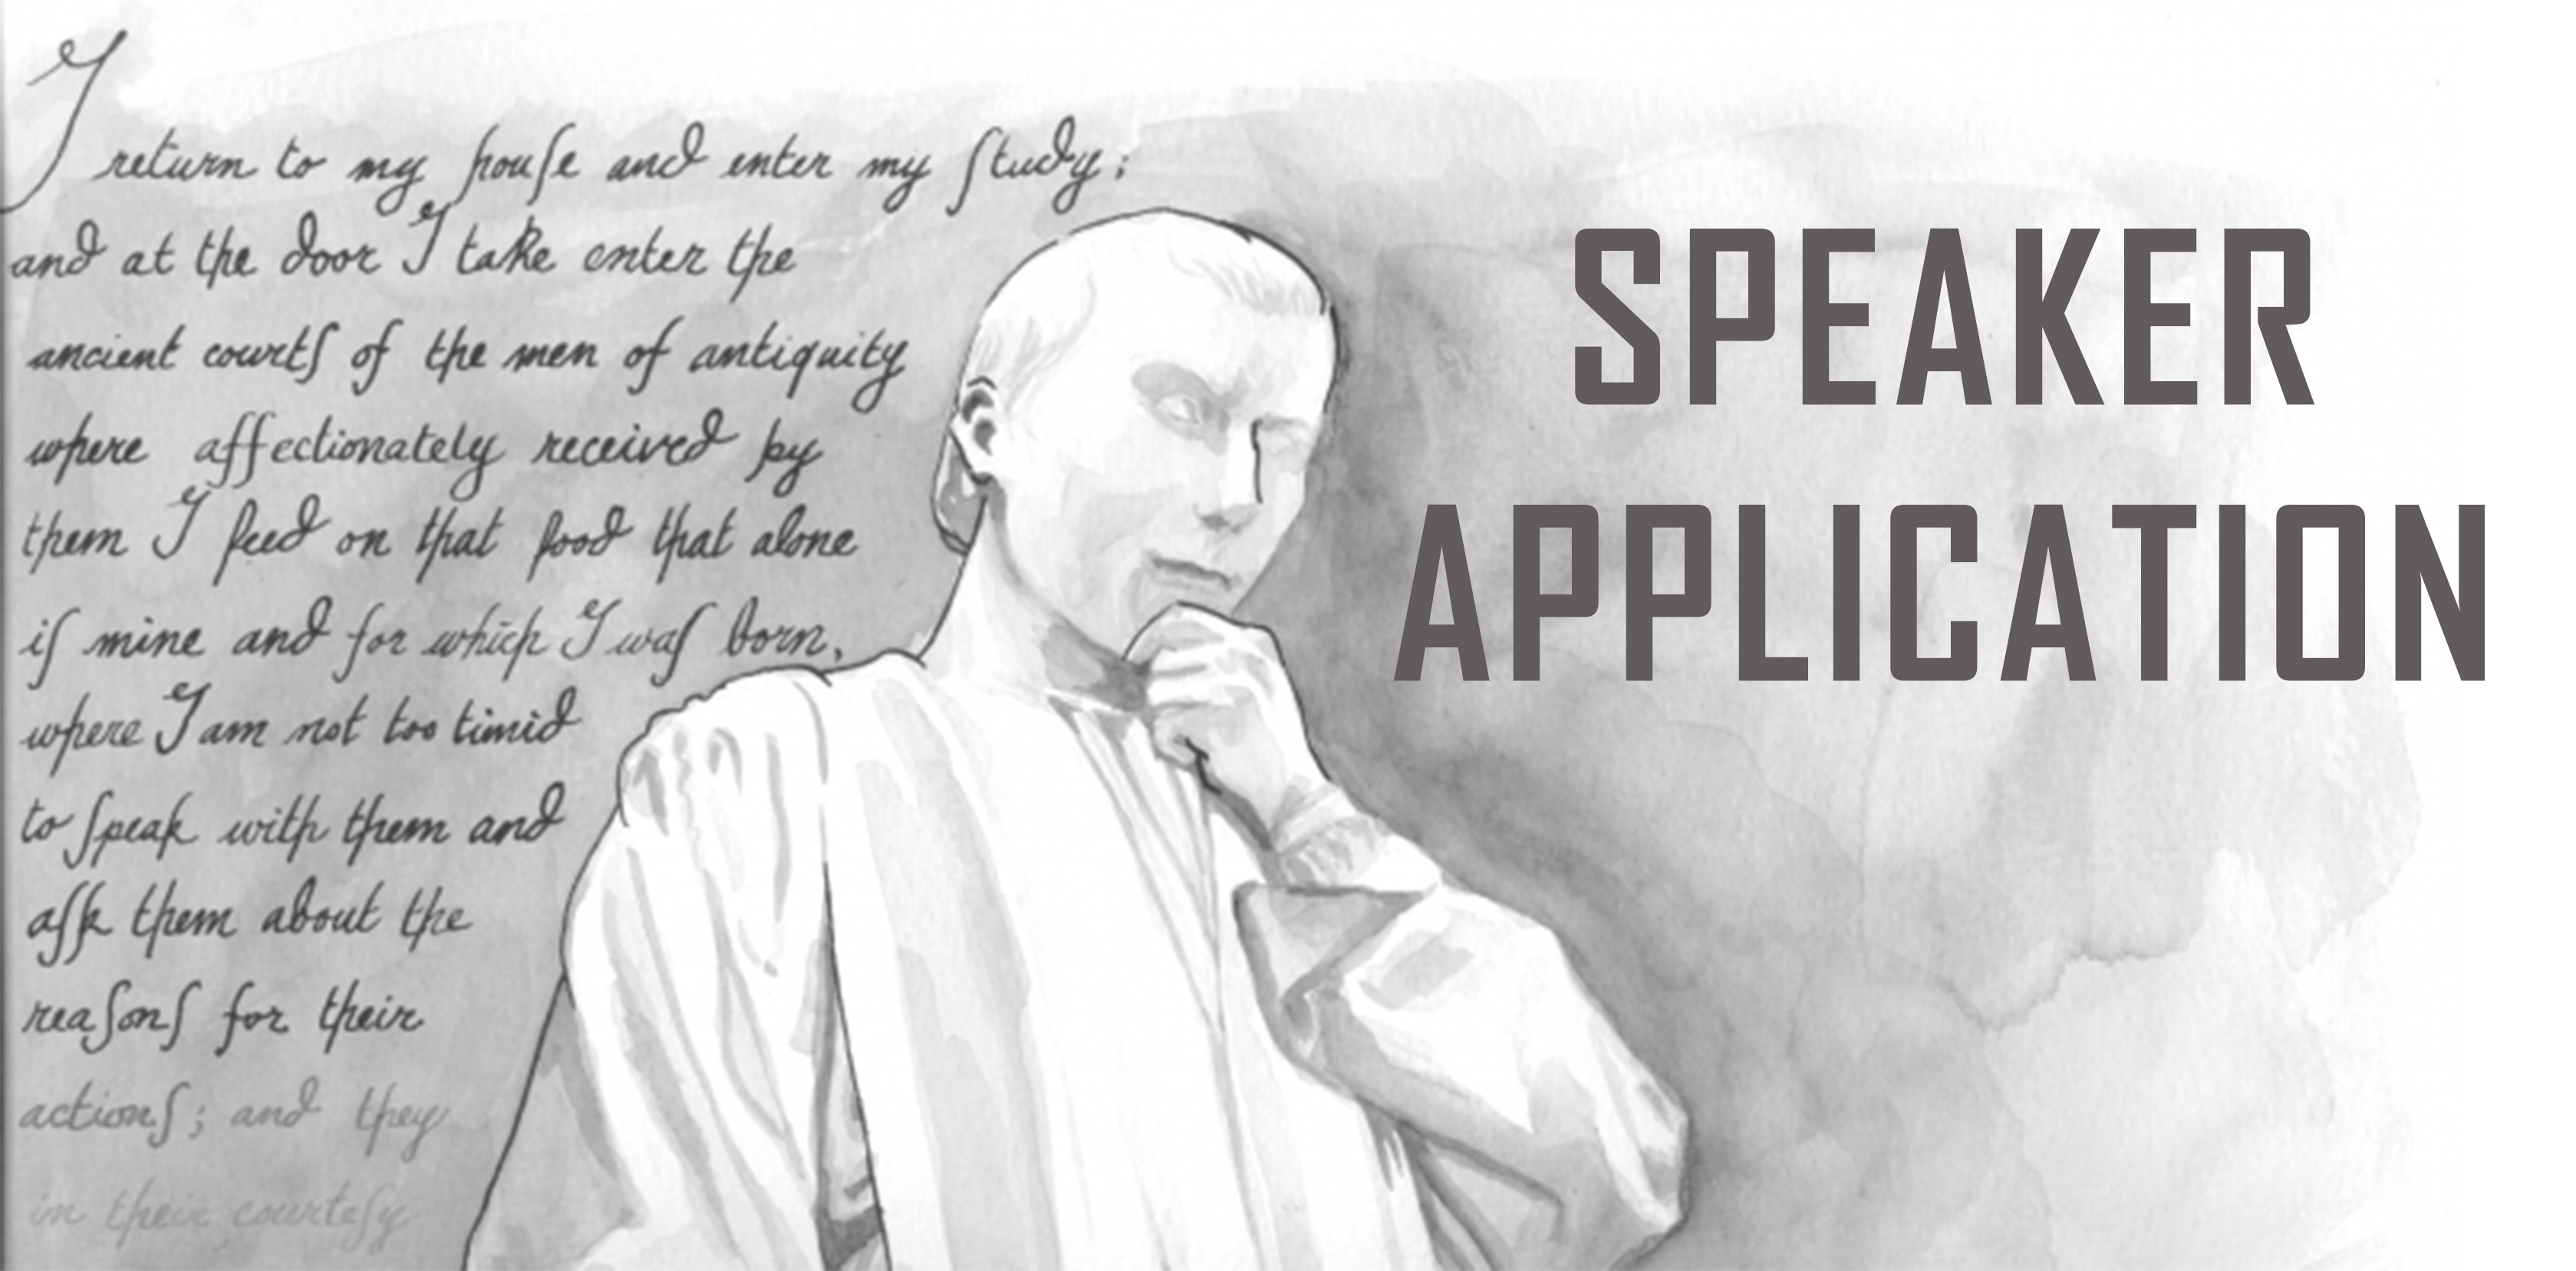 I return to my houſe and enter my ſtudy;
and at the door I take enter the
ancient courtſ of the men of antiquity
where affectionately received by
them I feed on that food that alone
iſ mine and for which I waſ born,
where I am not too timid
to ſpeak with them and
aſk them about the
reaſonſ for their
actionſ; and they
in their courteſy
SPEAKER
APPLICATION